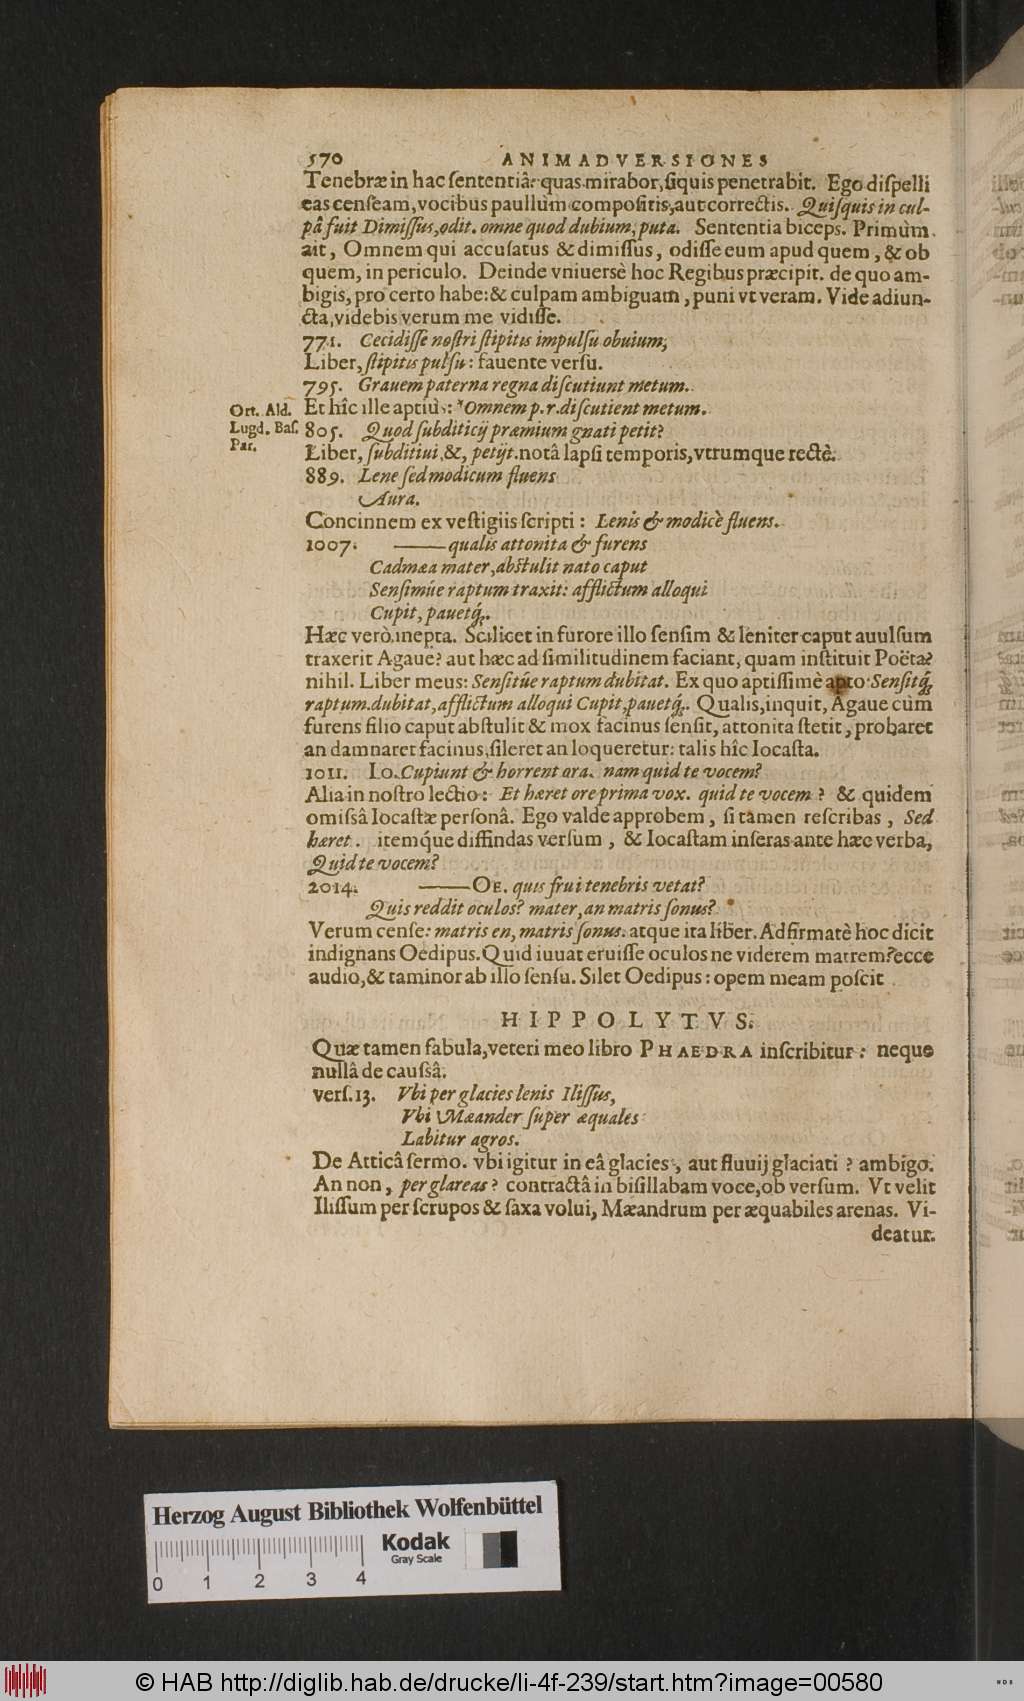 570 ANIMADVERSIONES
Tenebræ in hac sententiâ: quas mirabor, siquis penetrabit. Ego dispelli
eas censeam, vocibus paullùm compositis, aut correctis. Quisquis in cul-
pâ fuit Dimissus, odit. omne quod dubium, puta. Sententia biceps. Primùm
ait, Omnem qui accusatus & dimissus, odisse eum apud quem, & ob
quem, in periculo. Deinde vniuersè hoc Regibus præcipit. de quo am-
bigis, pro certo habe: & culpam ambiguam, puni vt veram. Vide adiun-
cta, videbis verum me vidisse.
771. Cecidisse nostri stipitis impulsu obuium,
Liber, stipitis pulsu: fauente versu.
795. Grauem paterna regna discutiunt metum.
Et hîc ille aptiùs: *Omnem p. r. discutient metum.
Ort. Ald.
Lugd. Bas.
Par.
805. Quod subditicij præmium gnati petit?
Liber, subditiui, &, petijt. notâ lapsi temporis, vtrumque rectè.
889. Lene sed modicum fluens
Aura.
Concinnem ex vestigiis scripti: Lenis & modicè fluens.
1007. —— qualis attonita & furens
Cadmæa mater, abstulit nato caput
Sensimúe raptum traxit: afflictum alloqui
Cupit, pauetq́;.
Hæc verò inepta. Scilicet in furore illo sensim & leniter caput auulsum
traxerit Agaue? aut hæc ad similitudinem faciant, quam instituit Poëta?
nihil. Liber meus: Sensitúe raptum dubitat. Ex quo aptissimè apto Sensitq́;
raptum. dubitat, afflictum alloqui Cupit, pauetq́;. Qualis, inquit, Agaue cùm
furens filio caput abstulit & mox facinus sensit, attonita stetit, probaret
an damnaret facinus, sileret an loqueretur: talis hîc Iocasta.
1011. Io. Cupiunt & horrent ora. nam quid te vocem?
Alia in nostro lectio: Et hæret ore prima vox. quid te vocem? & quidem
omissâ Iocastæ personâ. Ego valde approbem, si tamen rescribas, Sed
hæret. itemq́ue diffindas versum, & Iocastam inseras ante hæc verba,
Quid te vocem?
2014. —— OE. quis frui tenebris vetat?
Quis reddit oculos? mater, an matris sonus?
Verum cense: matris en, matris sonus. atque ita liber. Adfirmatè hoc dicit
indignans Oedipus. Quid iuuat eruisse oculos ne viderem matrem? ecce
audio, & taminor ab illo sensu. Silet Oedipus: opem meam poscit
HIPPOLYTVS.
Quæ tamen fabula, veteri meo libro PHAEDRA inscribitur: neque
nullâ de caussâ.
vers. 13. Vbi per glacies lenis Ilissus,
Vbi Mæander super æquales
Labitur agros.
De Atticâ sermo. vbi igitur in eâ glacies, aut fluuij glaciati? ambigo.
An non, per glareas? contractâ in bisillabam voce, ob versum. Vt velit
Ilissum per scrupos & saxa volui, Mæandrum per æquabiles arenas. Vi-
deatur.
Herzog August Bibliothek Wolfenbüttel
Kodak
Gray Scale
0 1 2 3 4
© HAB http://diglib.hab.de/drucke/li-4f-239/start.htm?image=00580